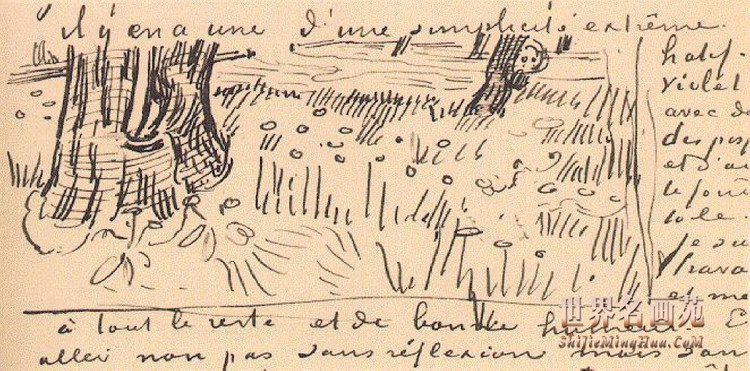 il y en a une d'une simplicité extrême.
violet
avec d
le fon
Je su
trava
et me
à tout le reste et de bonne humeur. E
aller non pas sans réflexion mais san
世界名画苑
ShiJieMingHua.CoM